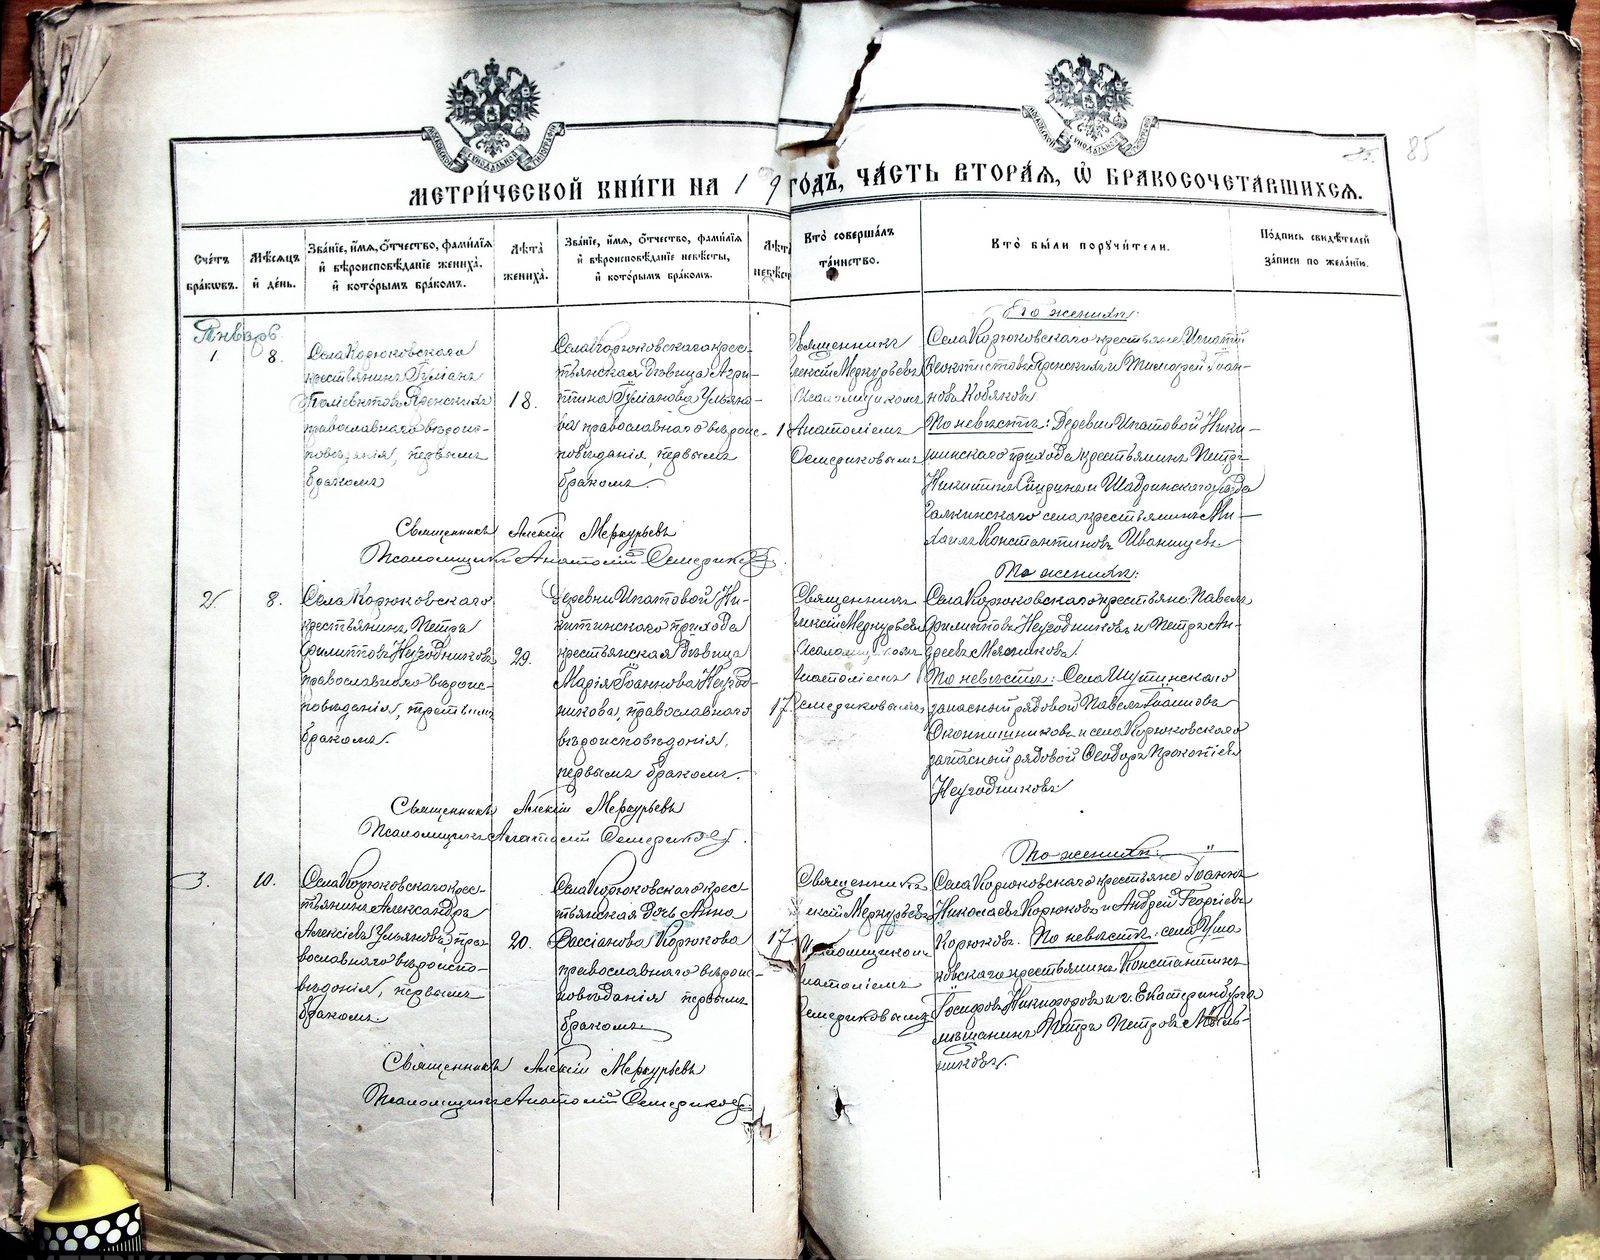 МОСКОВСКОЙ СѴНОДАЛЬНОЙ ТИПОГРАФІИ
85
МЕТРИ́ЧЕСКОЙ КНИ́ГИ НА 19 ГО́ДЪ, ЧА́СТЬ ВТОРА́Я, Ѽ БРАКОСОЧЕТА́ВШИХСЯ.
Сче́тъ бра́кѡвъ.
Мѣ́сяцъ и҆ де́нь.
Зва́нїе, и҆́мя, ѻ҆́тчество, фами́лїя и҆ вѣроисповѣ́данїе жениха̀. и҆ кото́рымъ бра́комъ.
Лѣ́та̀ жениха̀.
Зва́нїе, и҆́мя, ѻ҆́тчество, фами́лїя и҆ вѣроисповѣ́данїе невѣ́сты, и҆ кото́рымъ бра́комъ.
Лѣ́та̀ невѣ́ст
Кто̀ соверша́лъ та́инство.
Кто̀ бы́ли поручи́тели.
По́дпись свидѣ́телей за́писи по жела́нїю.
Январь
1
8.
Села Корюковскаго
крестьянинъ Іуліанъ
православнаго вѣроис-
повѣданія, первымъ
бракомъ
18.
Села Корюковскаго крес-
тьянская дѣвица Агри-
пина Іуліанова Ульяно-
ва православнаго вѣроис-
повѣданія, первымъ
бракомъ.
Священникъ
Алексій Меркурьевъ
Псаломщикомъ
Анатоліемъ
Семериковымъ
По женихѣ:
Села Корюковскаго крестьяне Игнатій
и Тимофей Іоан-
новъ Кобяковъ
По невѣстѣ: Деревни Ипатовой Ники-
тинскаго прихода крестьянинъ Петръ
Никитинъ и Шадринскаго уѣзда
Галкинскаго села крестьянинъ Ми-
хаилъ Константиновъ Иванищевъ
Священникъ Алексій Меркурьевъ
Псаломщикъ Анатолій Семериковъ
2
8.
Села Корюковскаго
крестьянинъ Петръ
Филипповъ Неугодниковъ
православнаго вѣроис-
повѣданія, третьимъ
бракомъ.
29.
Деревни Ипатовой Ни-
китинскаго прихода
крестьянская дѣвица
Марія Іоаннова Неугод-
никова, православнаго
вѣроисповѣданія,
первымъ бракомъ.
17.
Священникъ
Алексій Меркурьевъ
Псаломщикомъ
Анатоліемъ
Семериковымъ
По женихѣ:
Села Корюковскаго крестьяне: Павелъ
Филипповъ Неугодниковъ и Петръ Ан-
дреевъ Мясниковъ
По невѣстѣ: Села Шутинскаго
запасный рядовой Павелъ Іоанновъ
Оконишниковъ и села Корюковскаго
запасный рядовой Ѳеодоръ Прокопіевъ
Неугодниковъ
Священникъ Алексій Меркурьевъ
Псаломщикъ Анатолій Семериковъ.
3.
10.
Села Корюковскаго крес-
тьянинъ Александръ
Алексіевъ Ульяновъ, пра-
вославнаго вѣроиспо-
вѣданія, первымъ
бракомъ.
20.
Села Корюковскаго крес
тьянская дочь Анна
Вассіанова Корюкова
православнаго вѣроис-
повѣданія первымъ
бракомъ
17
Священникъ
Алексій Меркурьевъ
Псаломщикомъ
Анатоліемъ
Семериковымъ
По женихѣ:
Села Корюковскаго крестьяне Іоаннъ
Николаевъ Корюковъ и Андрей Георгіевъ
Корюковъ. По невѣстѣ: села Уша
ковскаго крестьянинъ Константинъ
Іосифовъ Никифоровъ и г. Екатеринбурга
мѣщанинъ Петръ Петровъ Мыль-
никовъ.
Священникъ Алексій Меркурьевъ
Псаломщикъ Анатолій Семериковъ